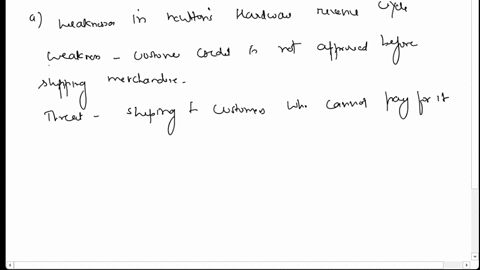 a) weakness in newton's Hardware revenue cycle
weakness - customer credit is not approved before
shipping merchandise.
Threat - shiping to customers who cannot pay for it